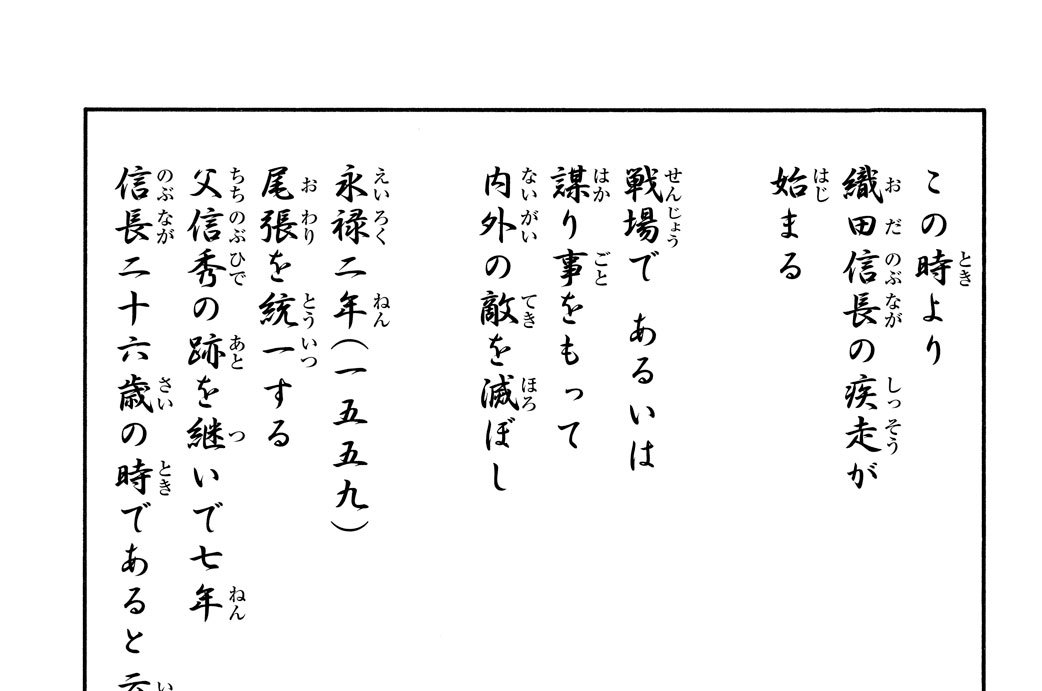 この時より
織田信長の疾走が
始まる
戦場で あるいは
謀り事をもって
内外の敵を滅ぼし
永禄二年(一五五九)
尾張を統一する
父信秀の跡を継いで七年
信長二十六歳の時であると